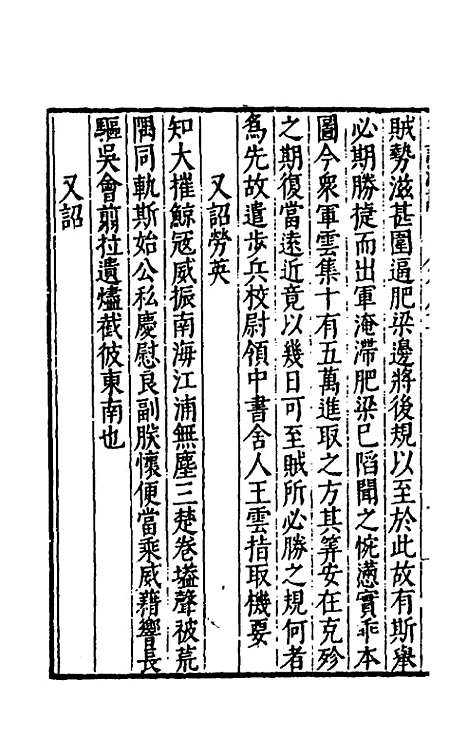 賊勢滋甚圍逼肥梁邊將後規以至於此故有斯舉
必期勝捷而出軍淹滯肥梁已䧟聞之惋懣實乖本
圖今衆軍雲集十有五萬進取之方其筭安在克殄
之期復當遠近竟以幾日可至賊所必勝之規何者
爲先故遣步兵校尉領中書舍人王雲指取機要
又詔勞英
知大摧鯨冦威振南海江浦無塵三楚卷壒聲被荒
隅同軌斯始公私慶慰良副朕懷便當乘威藉響長
驅吳會翦拉遺燼截彼東南也
又詔